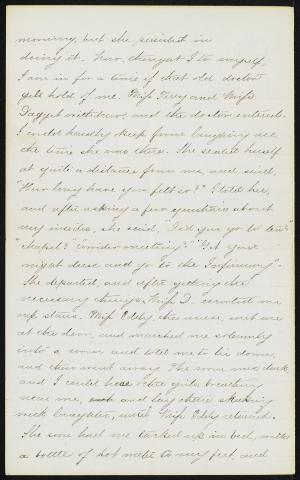 morning, but she persisted in
doing it. Now, thought I to myself,
I am in for a time if that old doctor
gets hold of me. Miss Terry and Miss
Daggett withdrew, and the doctor entered.
I could hardly keep from laughing all
the time she was there. She seated herself
at quite a distance from me, and said,
"How long have you felt so?" I told her,
and after asking a few questions about
my insides, she said, "Did you go to tea?"
"chapel?" "under meeting?" "Get your
night dress and go to the Infirmary".
She departed, and after getting the
necessary things, Miss D. escorted me
up stairs. Miss Eddy the nurse, met me
at the door, and marched me solemnly
into a room and told me to lie down,
and then went away. The room was dark
and I could hear some quite breathing
near me, and lay there shaking
with laughter, until Miss Eddy returned.
She soon had me tucked up in bed, with
a bottle of hot water to my feet, and